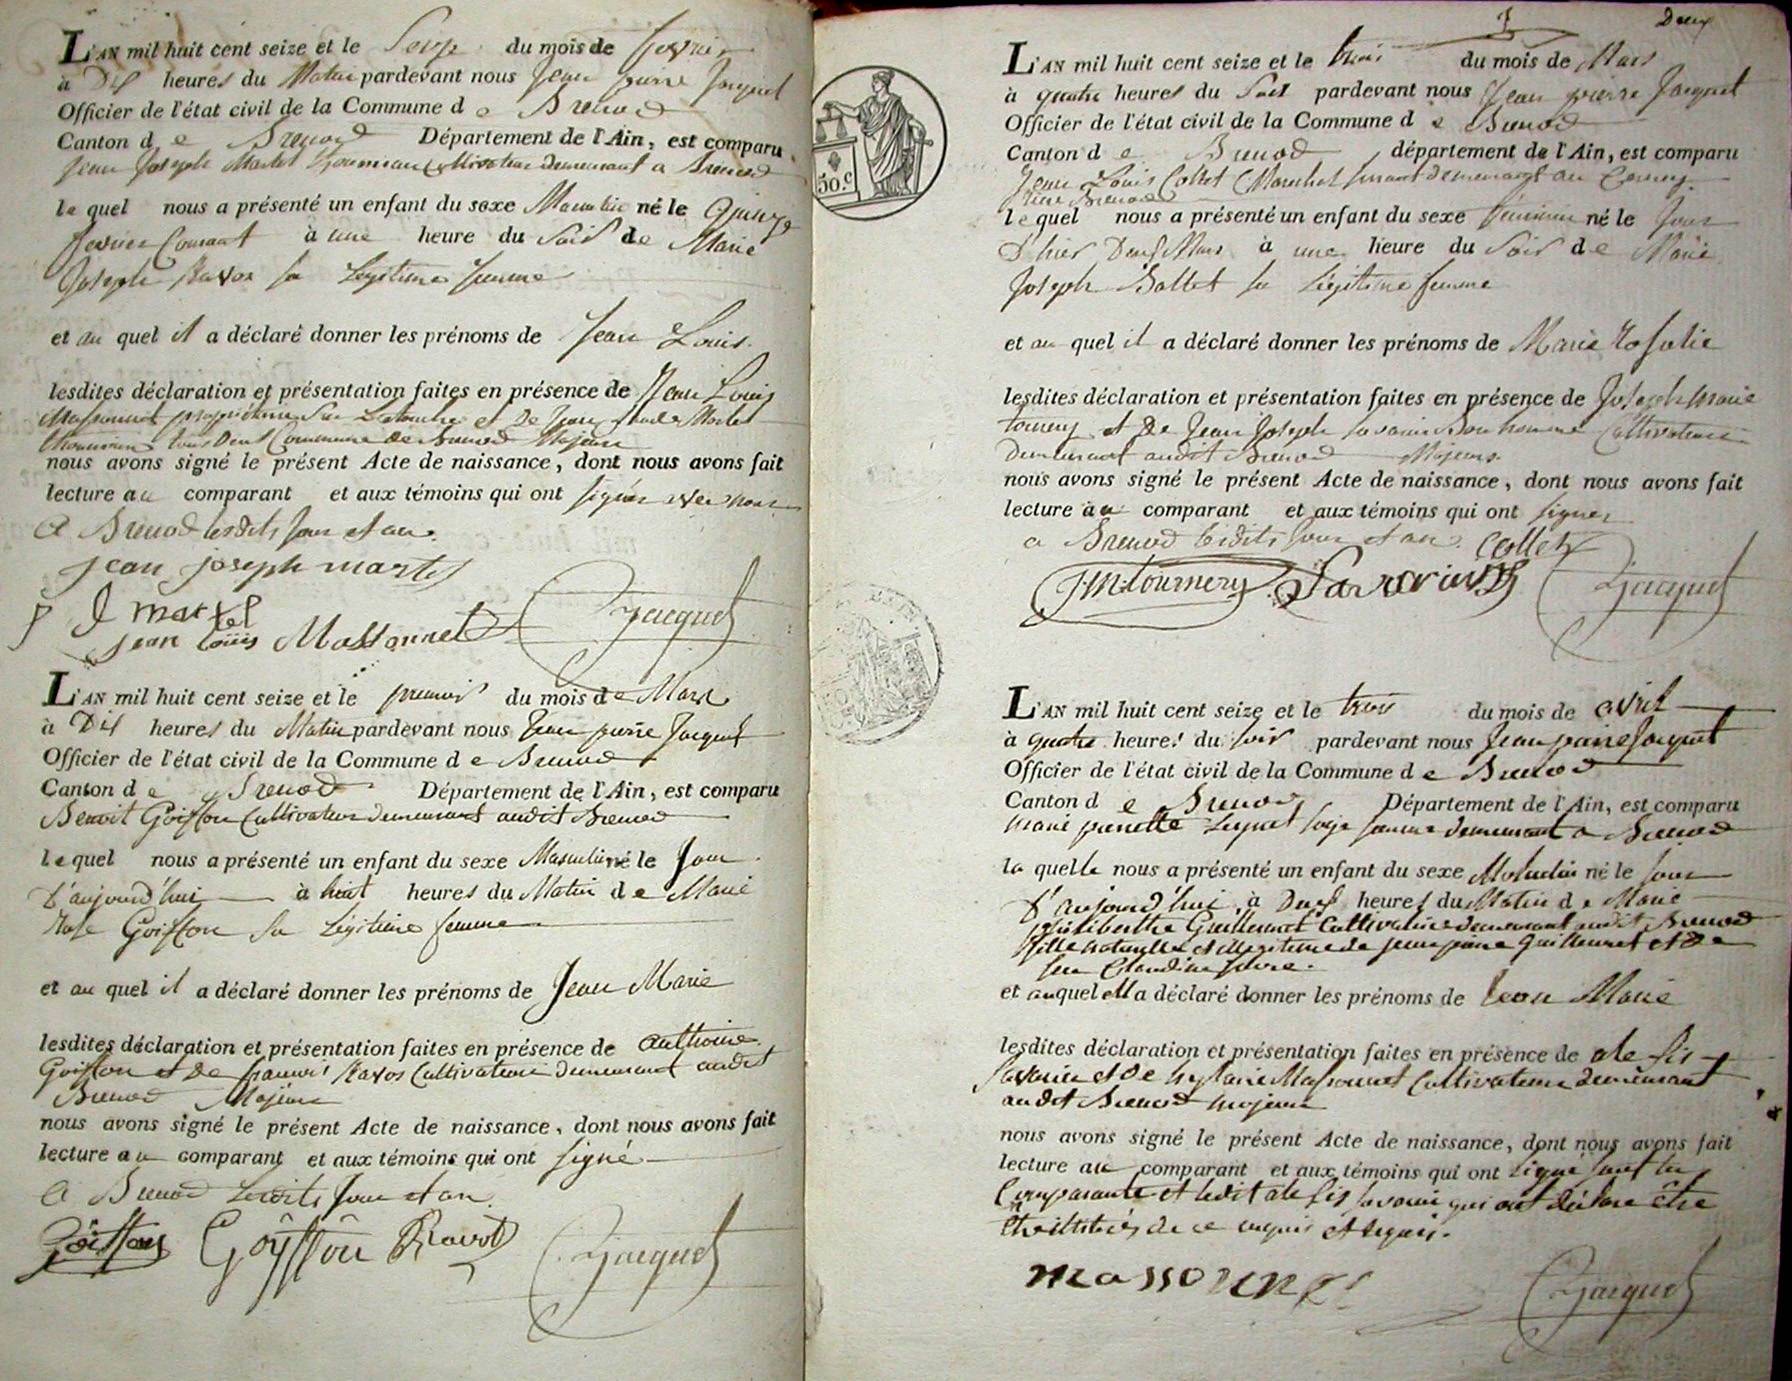 L'AN mil huit cent seize et le Seize du mois de fevrier
à Dix heures du Matin pardevant nous Jean pierre Jacquet
Officier de l'état civil de la Commune d e Brenod
Canton d e Brenod Département de l'Ain, est comparu
Jean Joseph Martel Cultivateur demeurant a Brenod
le quel nous a présenté un enfant du sexe Masculin né le Quinze
fevrier Courant à une heure du Soir de Marie
Joseph Ravos sa Legitime femme
et au quel il a déclaré donner les prénoms de Jean Louis.
lesdites déclaration et présentation faites en présence de Jean Louis
Massonnet proprietaire et de Martel
tous Deux Commune de Brenod Majeurs
nous avons signé le présent Acte de naissance, dont nous avons fait
lecture au comparant et aux témoins qui ont signés avec nous
A Brenod lesdits Jour et an.
jean joseph martel
J martel
jean louis Massonnet Jacquet
L'AN mil huit cent seize et le premier du mois de Mars
à Dix heures du Matin pardevant nous Jean pierre Jacquet
Officier de l'état civil de la Commune d e Brenod
Canton d e Brenod Département de l'Ain, est comparu
Benoit Goiffon Cultivateur demeurant audit Brenod
le quel nous a présenté un enfant du sexe Masculin né le Jour
d'aujourd'hui à huit heures du Matin d e Marie
Rose Goiffon sa Légitime femme
et au quel il a déclaré donner les prénoms de Jean Marie
lesdites déclaration et présentation faites en présence de anthoine
Goiffon et de francois Ravos Cultivateurs demeurant audit
Brenod Majeurs
nous avons signé le présent Acte de naissance, dont nous avons fait
lecture au comparant et aux témoins qui ont signé
A Brenod Lesdits Jour et an
Goiffon Goÿffon Ravot Jacquet
50.c
Deux
L'AN mil huit cent seize et le trois du mois de Mars
à quatre heures du Soir pardevant nous Jean pierre Jacquet
Officier de l'état civil de la Commune d e Brenod
Canton d e Brenod département de l'Ain, est comparu
Jean Louis Collet Marechal demeurant au
Brenod
le quel nous a présenté un enfant du sexe féminin né le Jour
D'hier Deux Mars à une heure du Soir d e Marie
Joseph Ballet sa Légitime femme
et au quel il a déclaré donner les prénoms de Marie Rosalie
lesdites déclaration et présentation faites en présence de Joseph Marie
tournery et de Jean Joseph savarin Bonhomme Cultivateurs
Demeurant audit Brenod Majeurs.
nous avons signé le présent Acte de naissance, dont nous avons fait
lecture au comparant et aux témoins qui ont signés
a Brenod lesdits Jour et an. Collet
JM tournery Savarin Jacquet
L'AN mil huit cent seize et le trois du mois de avril
à quatre heures du soir pardevant nous Jean pierre Jacquet
Officier de l'état civil de la Commune d e Brenod
Canton d e Brenod Département de l'Ain, est comparu
Marie pierrette sage femme demeurant a Brenod
la quelle nous a présenté un enfant du sexe Masculin né le Jour
d'aujourd'hui à Deux heures du Matin d e Marie
philiberthe Guillermet Cultivatrice demeurant audit Brenod
fille naturelle et Legitime de Jean pierre Guillermet et de
feu Claudine
et auquel ella a déclaré donner les prénoms de Jean Marie
lesdites déclaration et présentation faites en présence de alexis
savarin et de hylaire Massonnet Cultivateurs demeurant
audit Brenod majeurs
nous avons signé le présent Acte de naissance, dont nous avons fait
lecture au comparant et aux témoins qui ont signé sauf la
Comparante et ledit alexis savarin qui ont déclaré être
illitérés de ce enquis et requis.
massonnet Jacquet